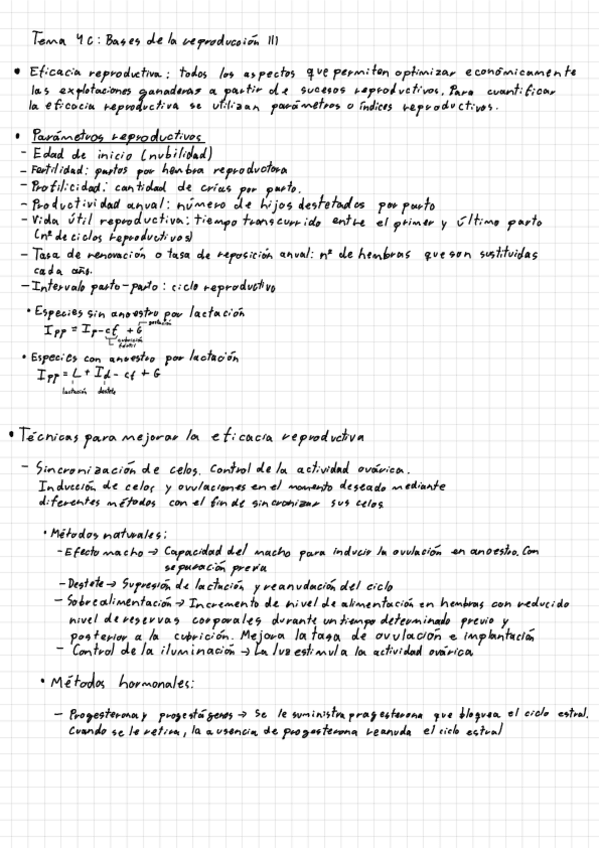 Tema 4C: Bases de la reproducción III
• Eficacia reproductiva: todos los aspectos que permiten optimizar económicamente
las explotaciones ganaderas a partir de sucesos reproductivos. Para cuantificar
la eficacia reproductiva se utilizan parámetros o índices reproductivos.
• Parámetros reproductivos
- Edad de inicio (nubilidad)
- Fertilidad: partos por hembra reproductora
- Prolificidad: cantidad de crías por parto.
- Productividad anual: número de hijos destetados por parto
- Vida útil reproductiva: tiempo transcurrido entre el primer y último parto
(nº de ciclos reproductivos)
- Tasa de renovación o tasa de reposición anual: nº de hembras que son sustituidas
cada año.
- Intervalo parto-parto: ciclo reproductivo
• Especies sin anoestro por lactación
Ipp = Ip-cf + G
gestación
cubrición fértil
• Especies con anoestro por lactación
Ipp = L + Id-cf + G
lactación destete
• Técnicas para mejorar la eficacia reproductiva
- Sincronización de celos. Control de la actividad ovárica.
Inducción de celos y ovulaciones en el momento deseado mediante
diferentes métodos con el fin de sincronizar sus celos
• Métodos naturales:
- Efecto macho → Capacidad del macho para inducir la ovulación en anoestro. Con
separación previa
- Destete → Supresión de lactación y reanudación del ciclo
- Sobrealimentación → Incremento de nivel de alimentación en hembras con reducido
nivel de reservas corporales durante un tiempo determinado previo y
posterior a la cubrición. Mejora la tasa de ovulación e implantación
- Control de la iluminación → La luz estimula la actividad ovárica
• Métodos hormonales:
- Progesterona y progestágenos → Se le suministra progesterona que bloquea el ciclo estral.
Cuando se le retira, la ausencia de progesterona reanuda el ciclo estral